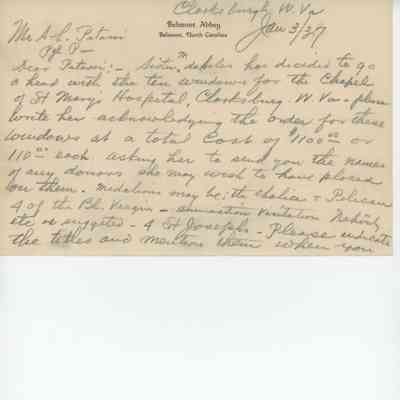 Clarksburg, W. Va
Belmont Abbey
Belmont, North Carolina
Jan 3/37
Mr A. L. Patani
Pgh Pa—
Dear Patani:- Sister M. has decided to go
a head with the ten windows for the Chapel
of St Mary's Hospital, Clarksburg W. Va - please
write her acknowledging the order for these
windows at a total cost of $1100.00 or
110.00 each asking her to send you the names
of any donors she may wish to have placed
on them. Medalions may be: the Chalice & Pelican
4 of the Bl. Virgin - annunciation Visitation Nativity
etc as suggested - 4 St Josephs - Please indicate
the titles and mention them when you